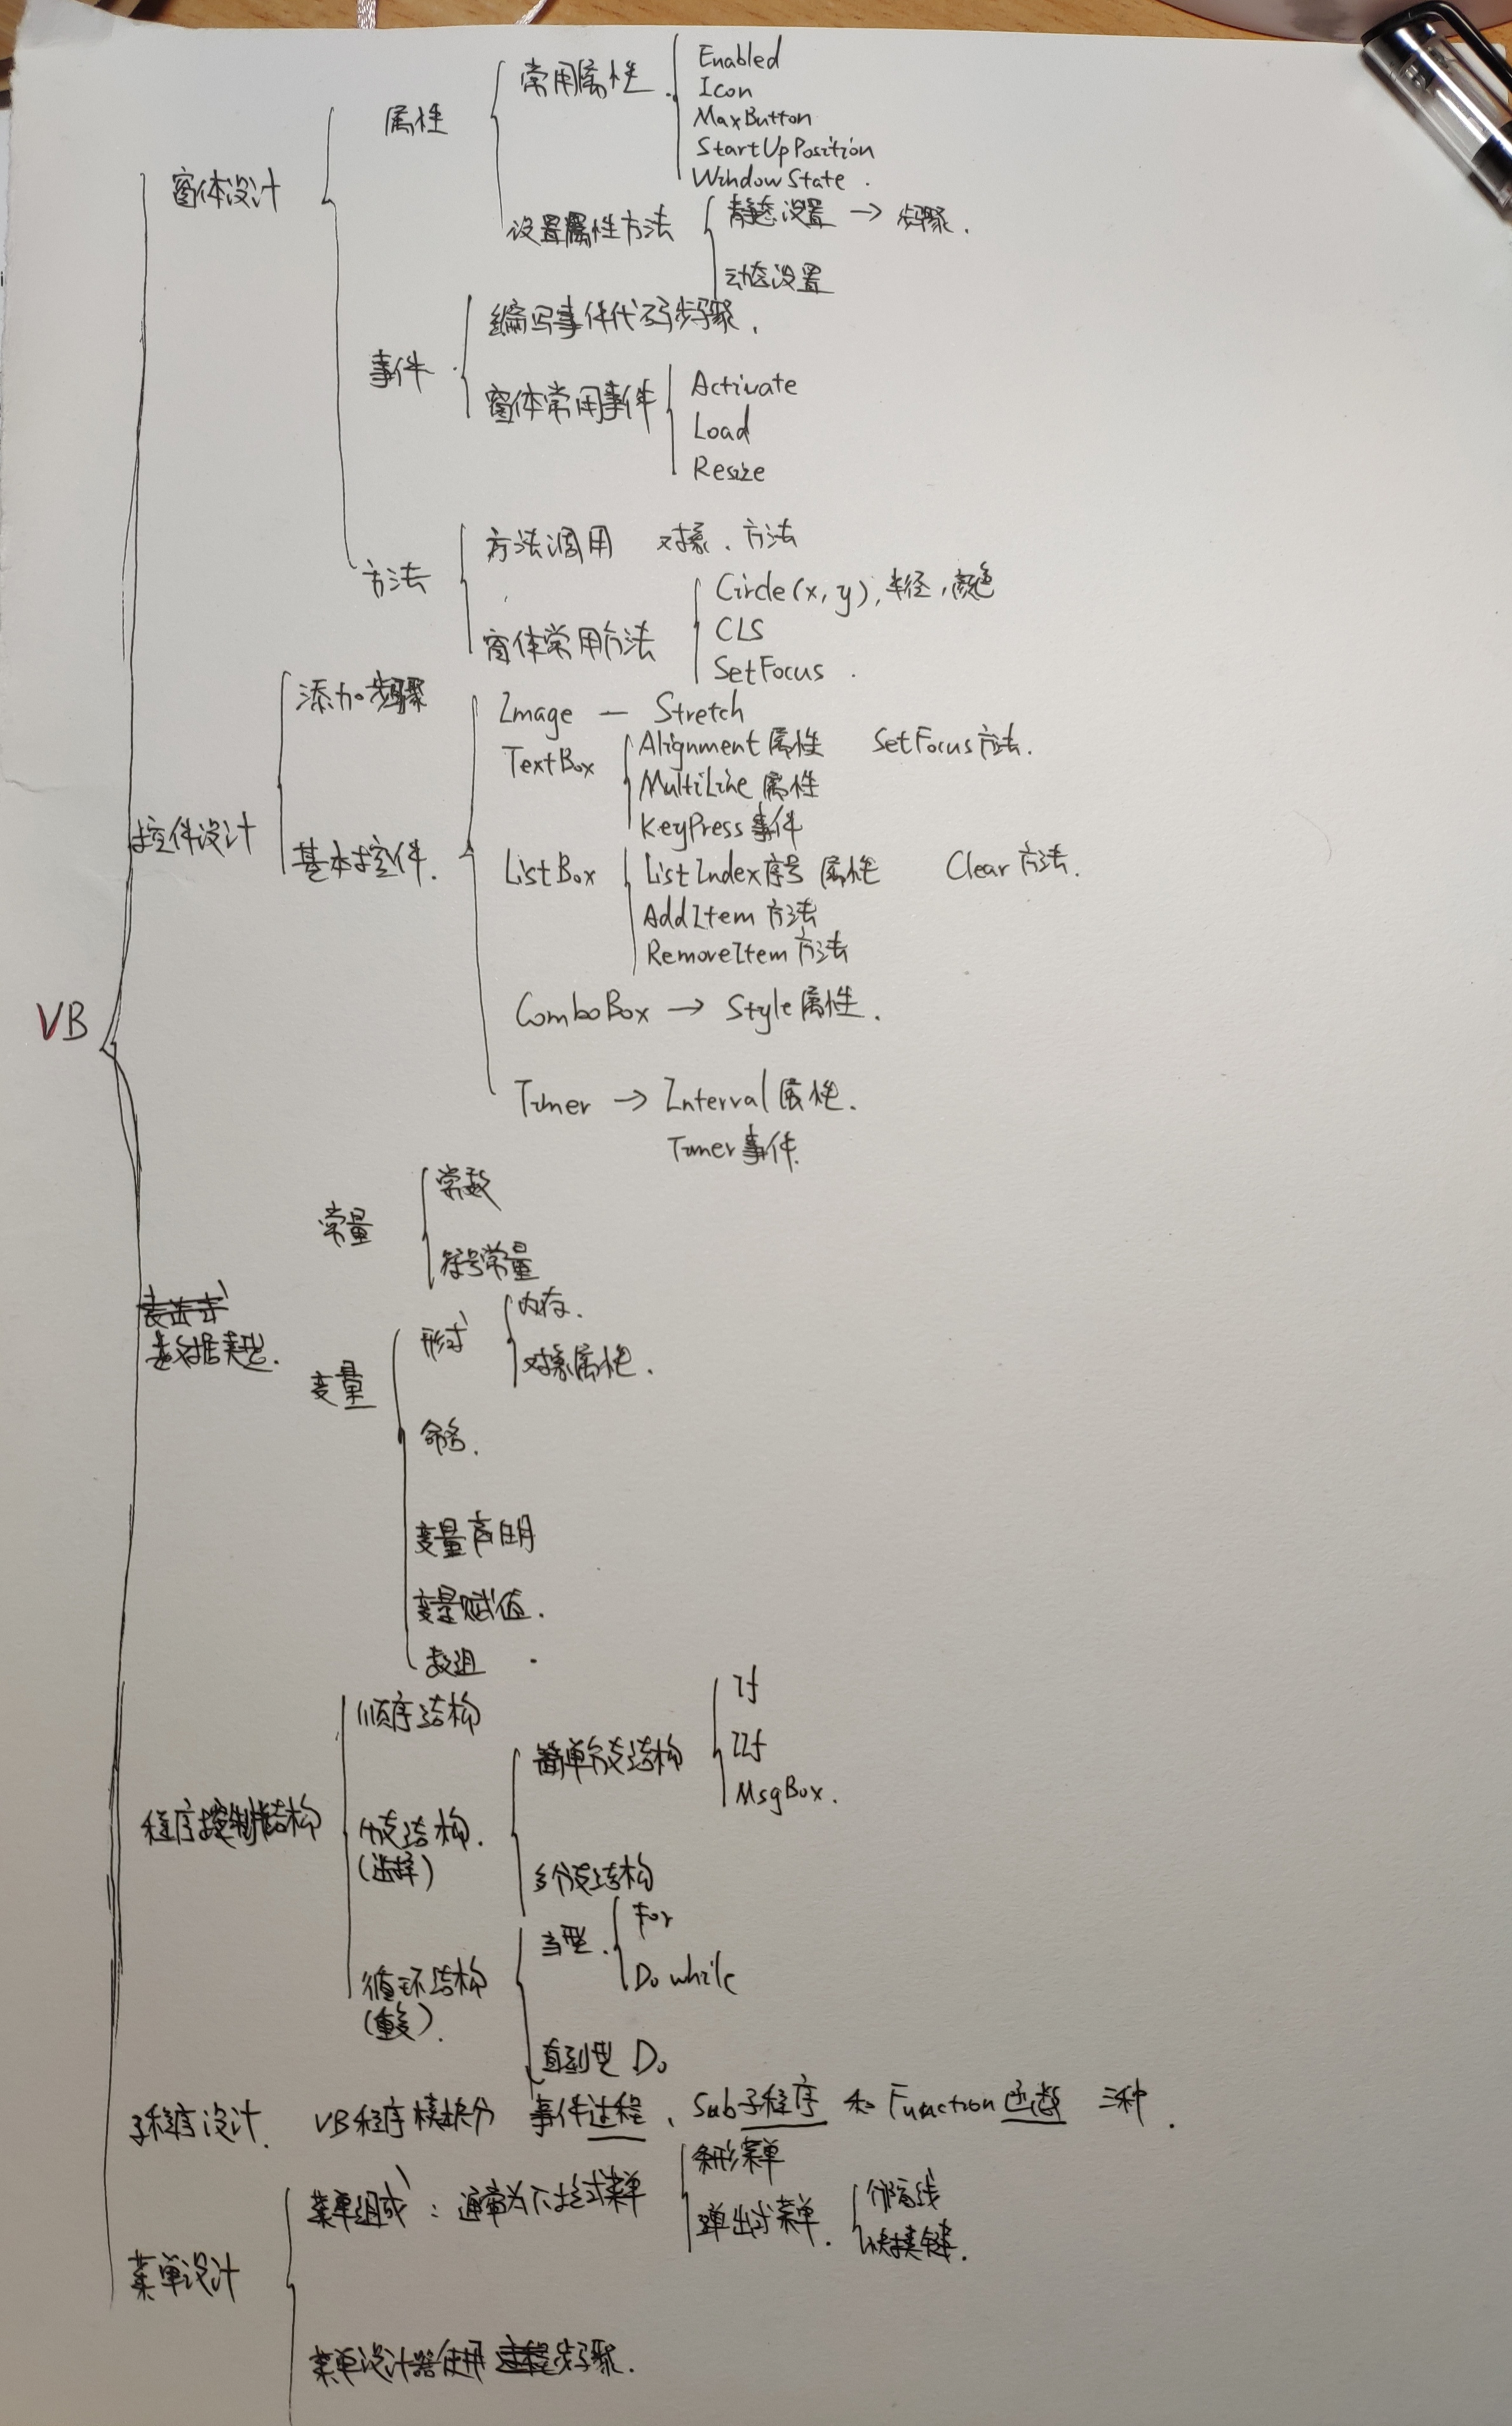 常用属性
Enabled
Icon
MaxButton
StartUpPosition
WindowState.
属性
窗体设计
设置属性方法
静态设置 → 步骤.
动态设置
编写事件代码步骤.
事件
窗体常用事件
Activate
Load
Resize
方法调用 对象.方法
方法
窗体常用方法
Circle(x, y), 半径, 颜色
CLS
SetFocus.
添加步骤
Image — Stretch
TextBox
Alignment 属性 SetFocus 方法.
MultiLine 属性
KeyPress 事件
控件设计
基本控件.
ListBox
ListIndex 序号 属性 Clear 方法.
AddItem 方法
RemoveItem 方法
ComboBox → Style 属性.
VB
Timer → Interval 属性.
Timer 事件.
常量
常数
符号常量
数据类型.
变量
形式
内存.
对象属性.
命名.
变量声明
变量赋值.
数组.
顺序结构
程序控制结构
分支结构.
(选择)
简单分支结构
If
IIf
MsgBox.
多分支结构
循环结构
(重复).
当型.
For
Do while
直到型 Do
子程序设计. VB程序模块分 事件过程、Sub子程序 和 Function函数 三种.
菜单设计
菜单组成: 通常为下拉式菜单
条形菜单
弹出式菜单.
分隔线
快捷键.
菜单设计器使用步骤.